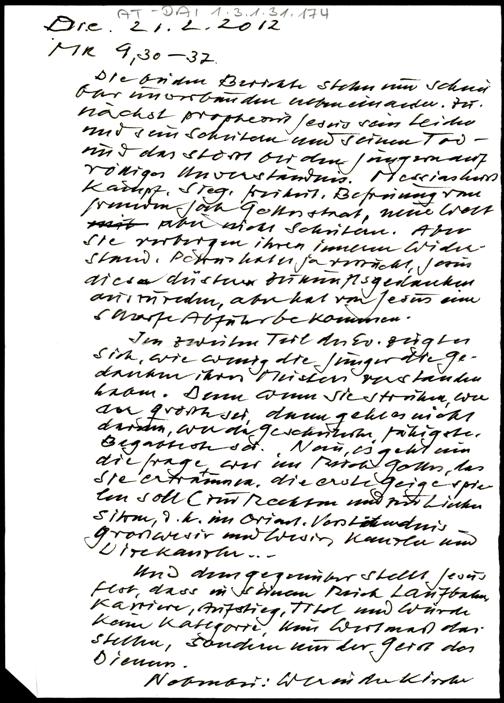 AT-DAI 1.3.1.31.174
Die. 21.2.2012
Mk 9,30-37
Die beiden Berichte stehn nun schein
bar unverbunden nebeneinander. Zu-
nächst prophezeit Jesus sein Leiden
und sein Scheitern und seinen Tod -
und das stösst bei den Jüngern auf
völliges Unverständnis. Messias heisst
Kampf. Sieg. Freiheit. Befreiung vom
fremden Joch Gottesstaat, neue Welt
aber nicht Scheitern. Aber
sie verbergen ihren inneren Wider-
stand. Petrus hat es ja versucht, Jesus
diese düstern Zukunftsgedanken
auszureden, aber hat von Jesus eine
scharfe Abfuhr bekommen.
Im zweiten Teil des Ev. zeigt es
sich, wie wenig die Jünger die Ge-
danken ihres Meisters verstanden
haben. Denn wenn sie streiten, wer
der grösste sei, dann geht es nicht
darum, wer der Gescheiteste, Fähigste,
Begabteste sei. Nein, es geht um
die Frage, wer im Reich Gottes, das
sie erträumen, die erste Geige spie-
len soll (zur Rechten und zur Linken
sitzen, d.h. im orient. Verständnis
Grosswesir und Wesir, Kanzler und
Vizekanzler...
Und demgegenüber stellt Jesus
fest, dass in seinem Reich Laufbahn
Karriere, Aufstieg, Titel und Würde
keine Kategorie, kein Wertmass dar
stellen, sondern nur der Geist des
Dienens.
Nebenbei: Wer in der Kirche